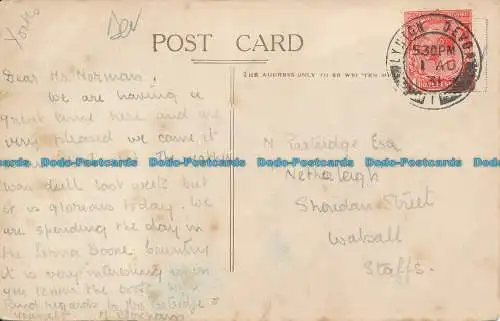 Yorks
Dev
POST CARD
THE ADDRESS ONLY TO BE WRITTEN
LYNTON DEVON
5 30 PM
1 AU
31
1
Dear Mr. Norman.
We are having a
great time here and are
very pleased we came, it
The weather
was dull last week but
it is glorious today. We
are spending the day in
the Lorna Doone Country
it is very interesting when
you know the book.
Kind regards to Mrs. Partridge &
yourself
M Partridge Esq
Netherleigh
Sheridan Street
Walsall
Staffs.
Dodo-Postcards Dodo-Postcards Dodo-Postcards Dodo-Postcards Dodo-Postcards